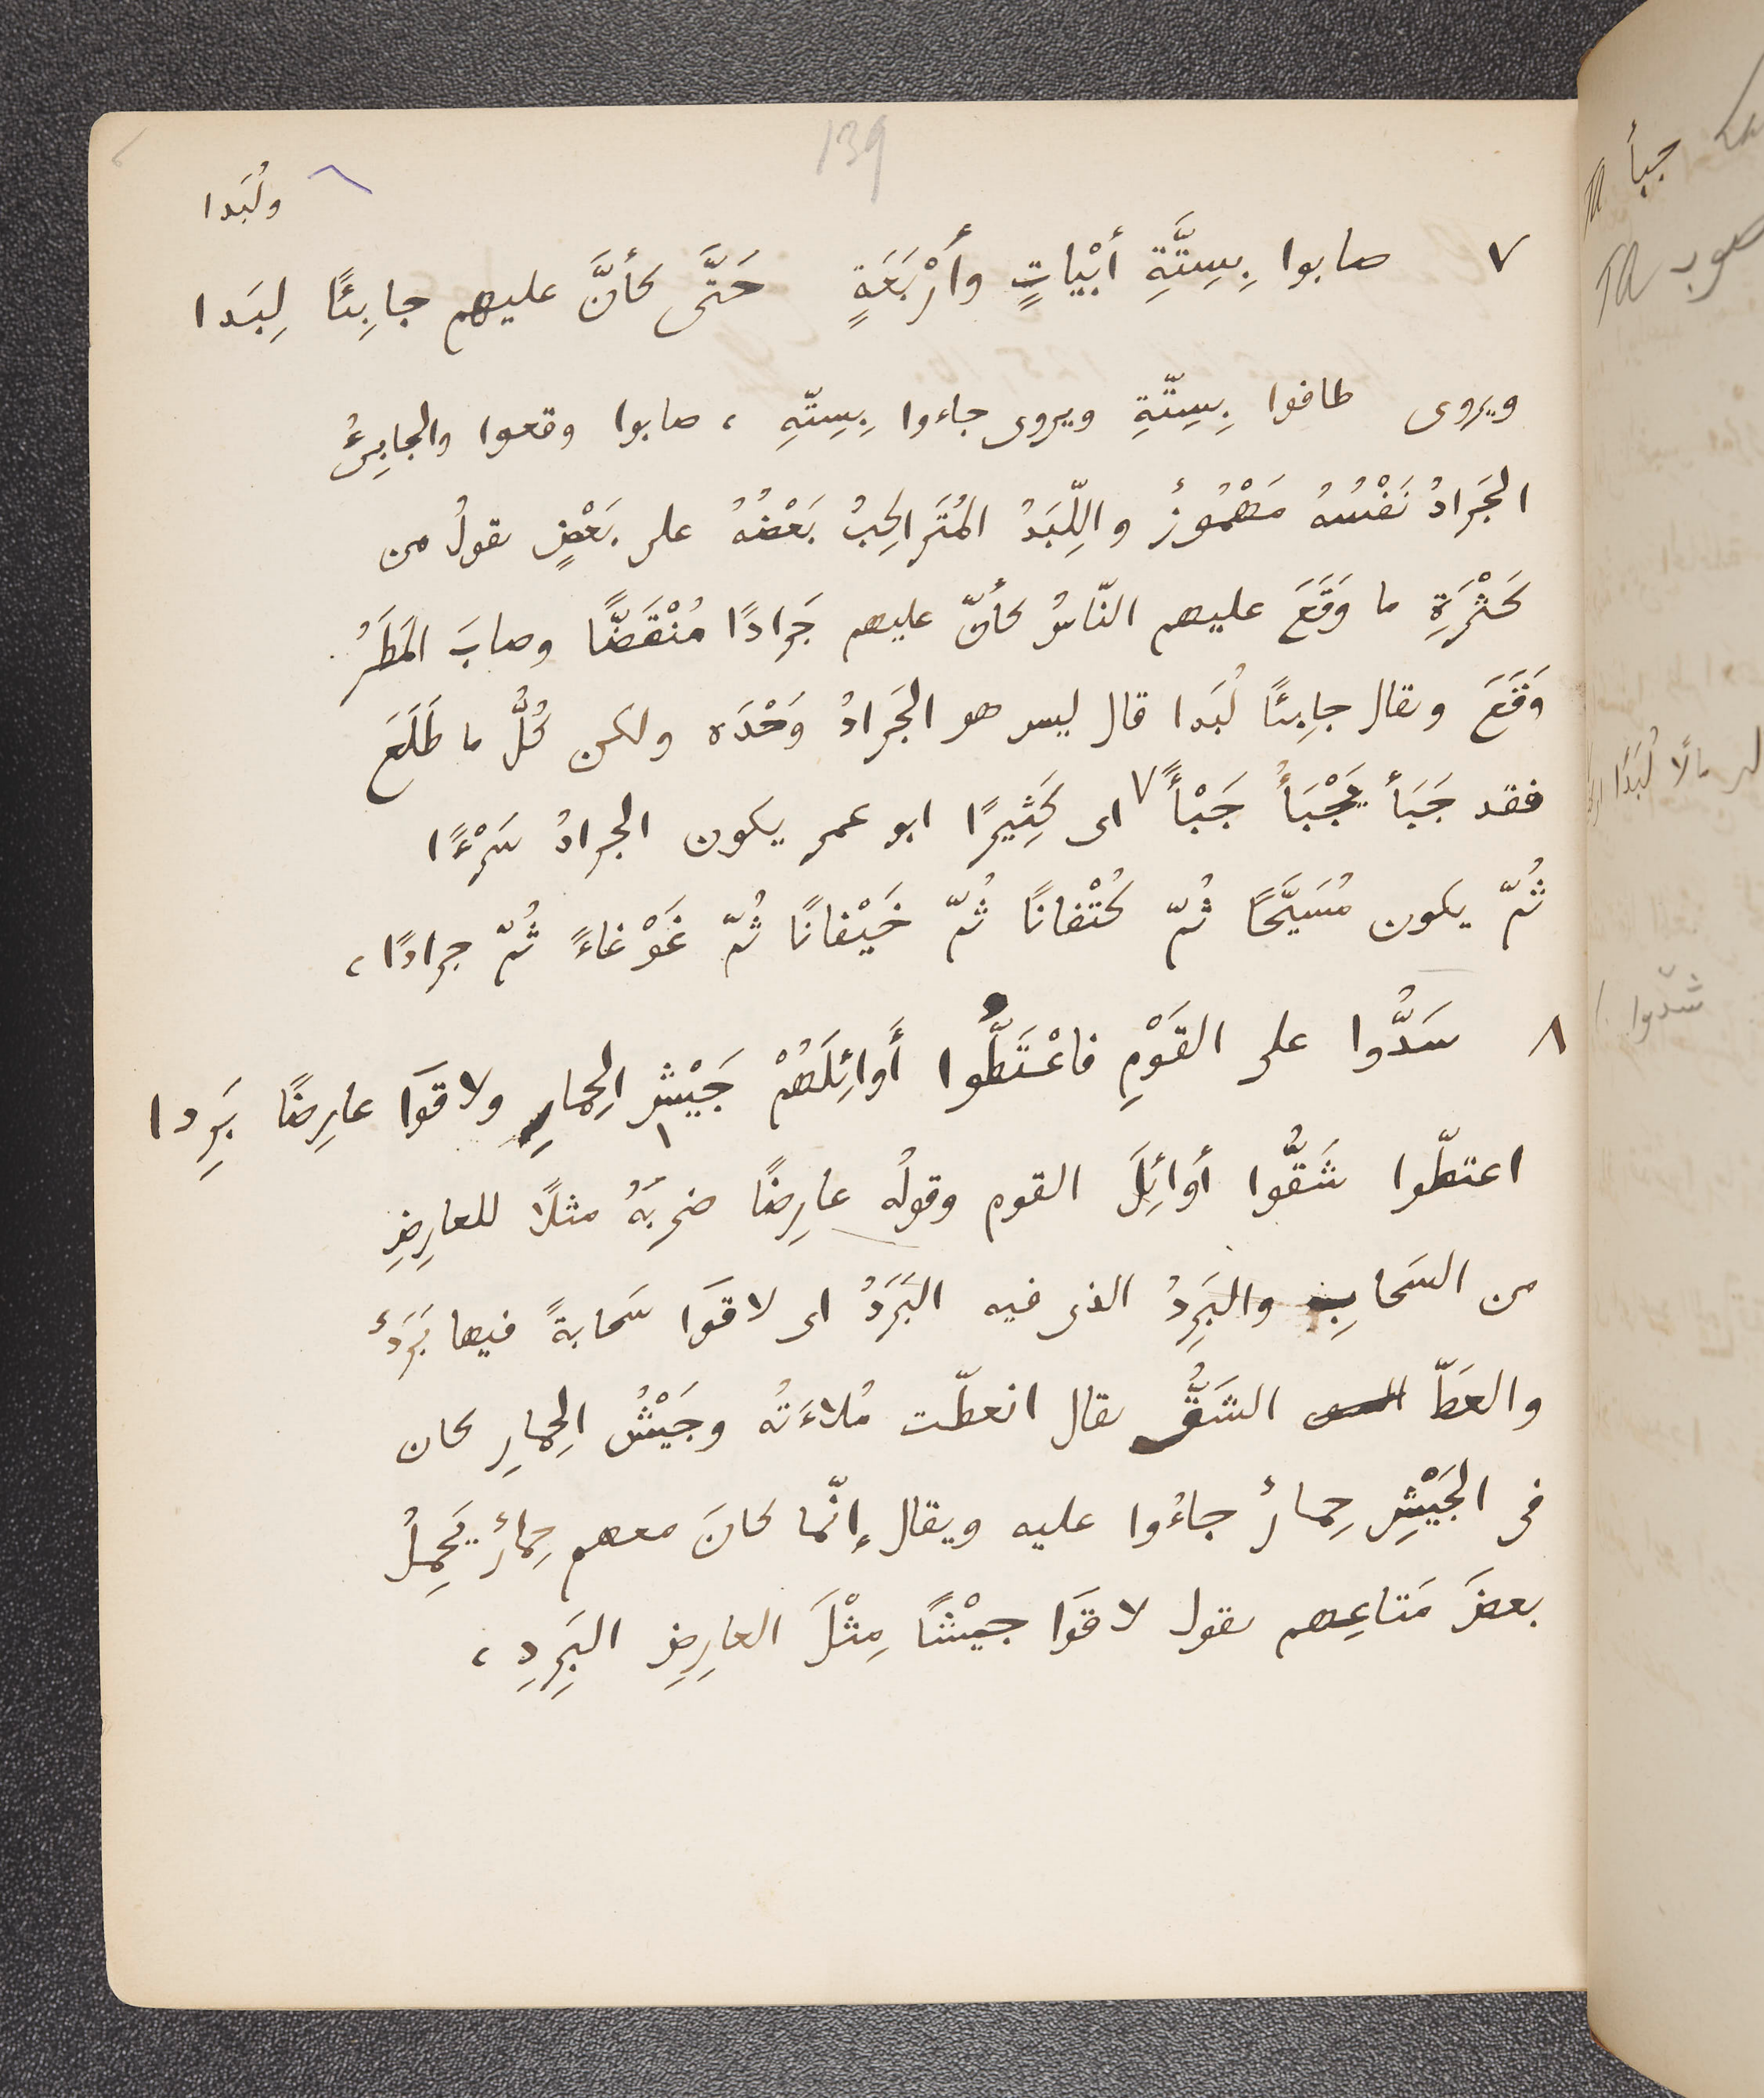 139
ولُبَدا
٧ صابوا بِسِتَّةِ أبْياتٍ وأَرْبَعَةٍ حَتَّى كأنَّ عليهم جابِئًا لِبَدا
ويروى طافوا بِسِتّةِ ويروى جاءوا بِسِتّةِ ، صابوا وقعوا والجابِئُ
الجَرادُ نَفْسُهُ مَهْمُوزٌ واللِّبَدُ المُتَراكِبُ بَعْضُهُ على بَعْضٍ يقولُ من
كَثْرَةِ ما وَقَعَ عليهم النّاسُ كأنّ عليهم جَرادًا مُنْقَضًّا وصابَ المَطَرُ
وَقَعَ ويقال جابِئًا لُبَدا قال ليس هو الجَرادُ وَحْدَه ولكن كُلُّ ما طَلَعَ
فقد جَبَأ يَجْبَأُ جَبْأً ٧ اى كَثِيرًا ابو عمر يكون الجرادُ سَرْءًا
ثُمّ يكون مُسَيَّحًا ثُمّ كُتْفانًا ثُمّ خَيْفانًا ثُمّ غَوْغاءً ثُمّ جرادًا ،
٨ سَدُّوا على القَوْمِ فاعْتَطُّوا أَوائِلَهُمْ جَيْشُ الحِمارِ ولاقَوَا عارِضًا بَرِدا
اعتطّوا شَقُّوا أوائِلَ القوم وقولُه عارِضًا ضربَهُ مثلًا للعارِضِ
من السَحابِ والبَرِدُ الذى فيه البَرَدُ اى لاقَوَا سَحابةً فيها بَرَدٌ
والعَطّ الشَقُّ يقال انعطّت مُلاءَتُه وجَيْشُ الحِمارِ كان
فى الجَيْشِ حِمارٌ جاءُوا عليه ويقال إنّما كانَ معهم حِمارٌ يَحْمِلُ
بعضَ مَتاعِهم يقول لاقَوَا جيْشًا مِثْلَ العارِضِ البَرِدِ ،
جبأ TA
صوب TA
مالًا لُبَدًا
شدّوا